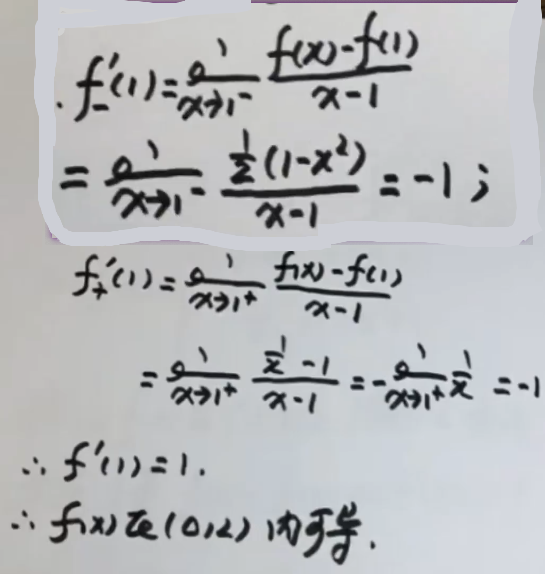 f₋'(1) = lim_{x→1⁻} (f(x)-f(1))/(x-1)
= lim_{x→1⁻} (1/2(1-x²))/(x-1) = -1;
f₊'(1) = lim_{x→1⁺} (f(x)-f(1))/(x-1)
= lim_{x→1⁺} (1/x - 1)/(x-1) = -lim_{x→1⁺} 1/x = -1
∴ f'(1) = 1.
∴ f(x)在(0,2)内可导.